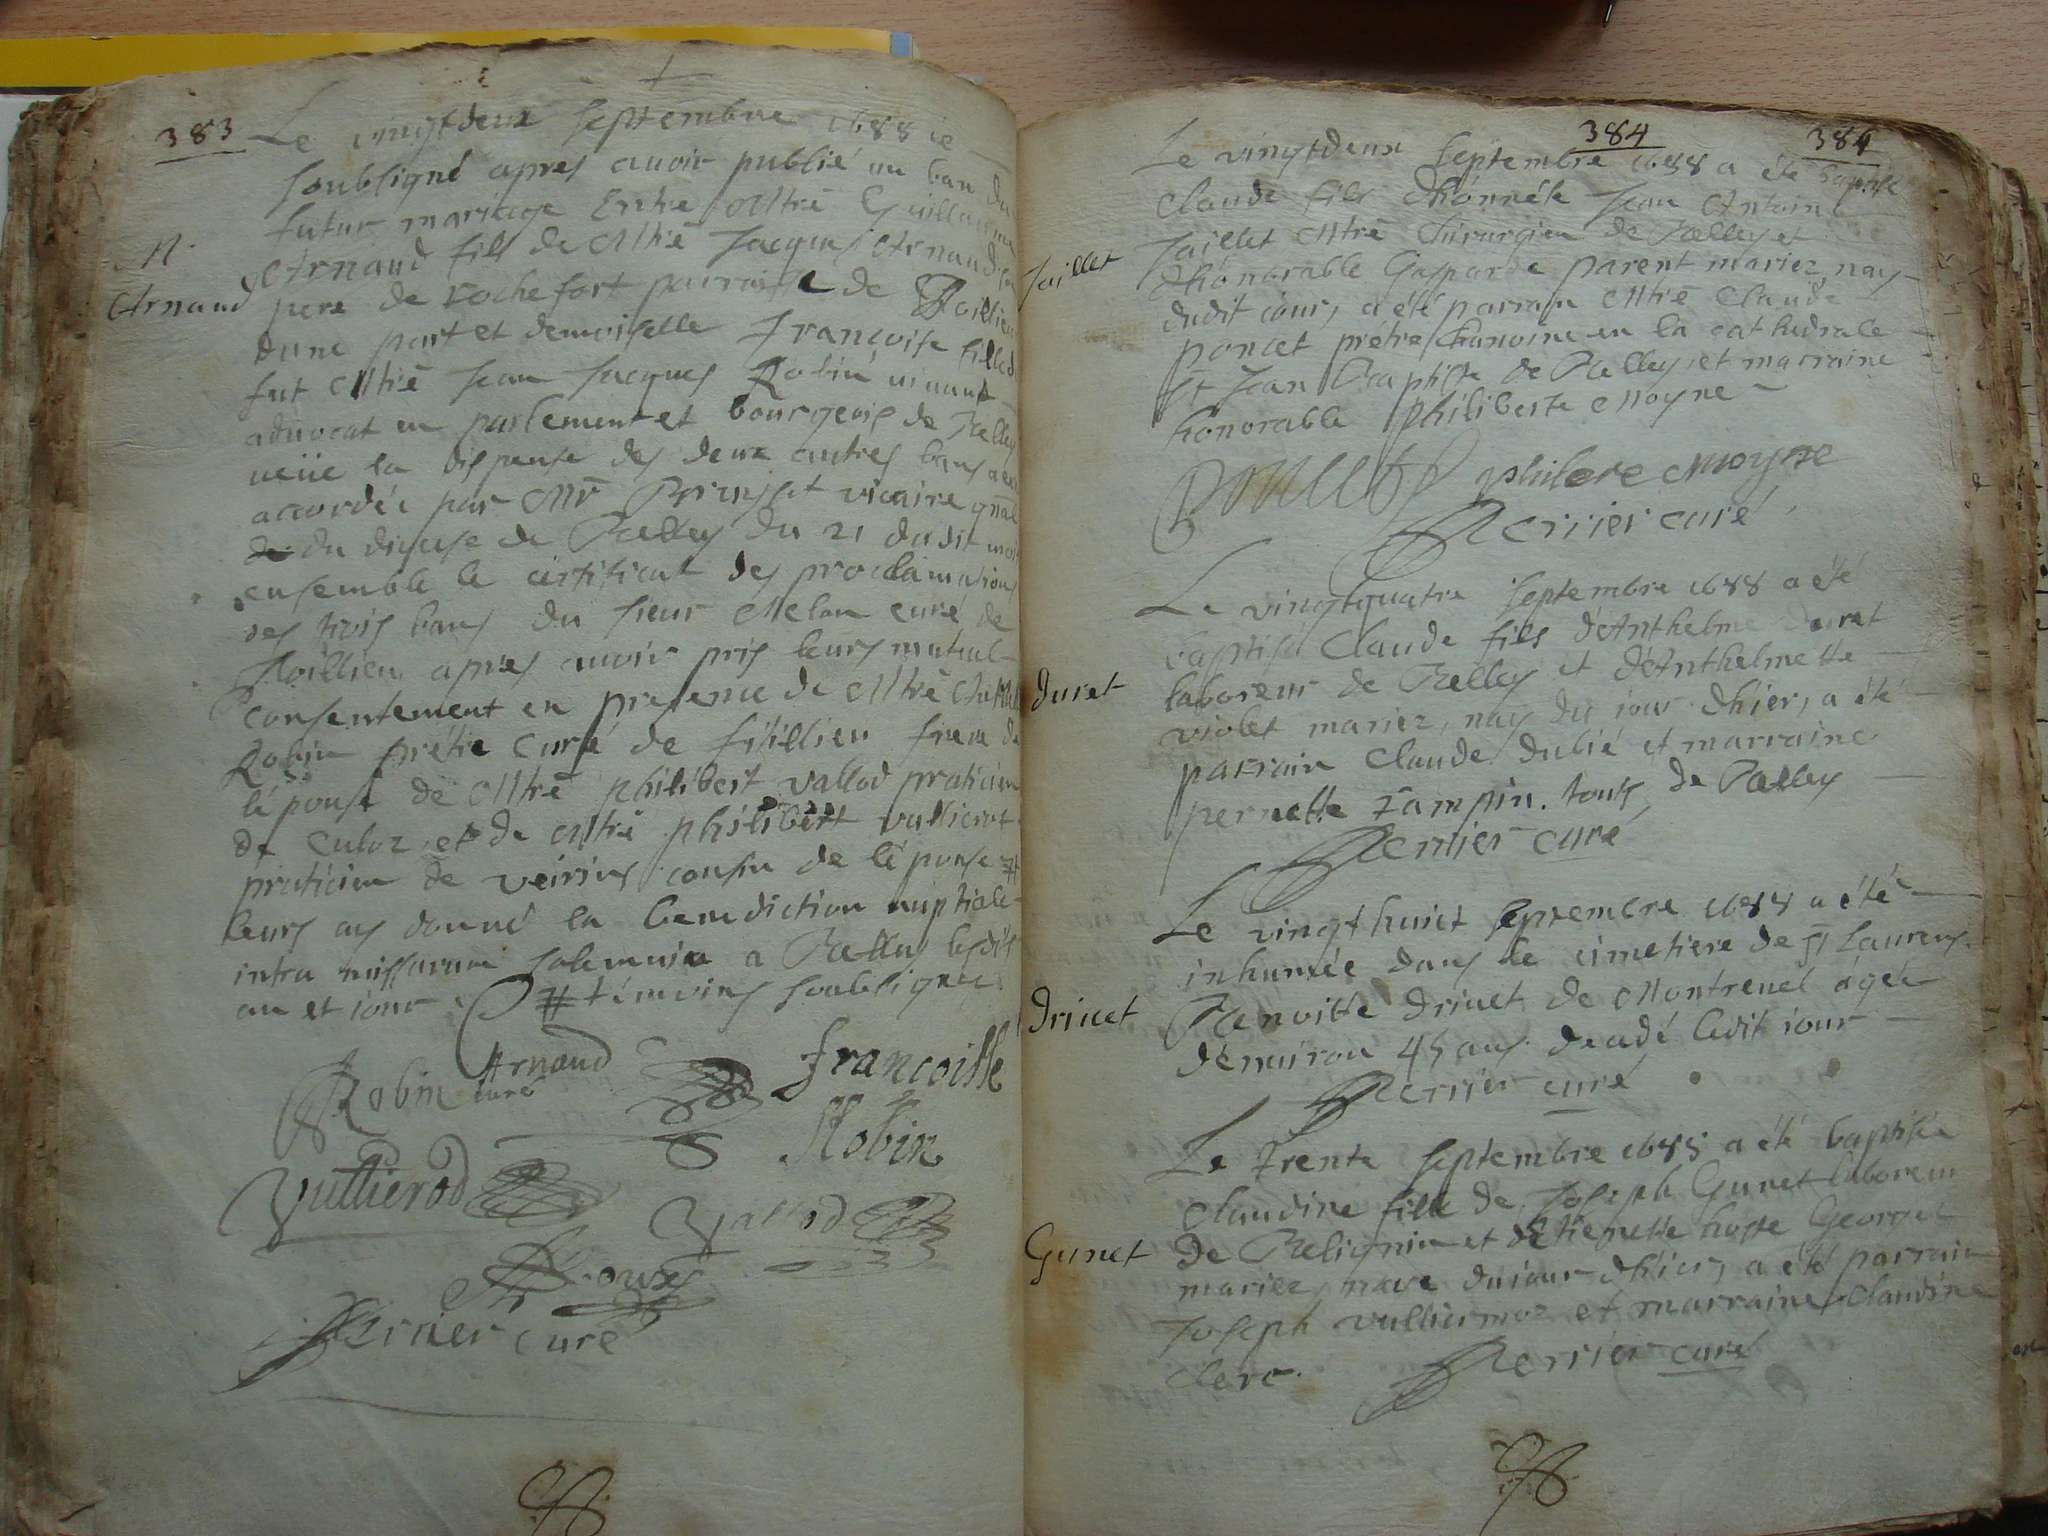 383
Le vingtdeux septembre 1688 ie
soubsigné apres avoir publié un ban du
futur mariage Entre Mtre Guillaume
N.
Arnaud
Arnaud fils de Mtre Jacques Arnaud
pere de rochefort parroisse de
dune part et demoiselle françoise fille de
fut Mtre Jean Jacques Robin vivant
advocat en parlement et bourgeois de Belley
veüe la dispense des deux autres bans
accordée par Mr vicaire gnãl
du diocese de Belley du 21 dudit mois
ensemble le certificat des proclamations
des trois bans du sieur Melon curé de
apres avoir pris leurs mutuel
consentement en presence de Mtre
Robin prêtre curé de frere de
lépouse de Mtre philibert vallod praticien
de culoz et de Mtre philibert vullierot
praticien de veirins cousin de lépouse #
leurs ay donné la benediction nuptiale
intra missarum solemnia a Belley lesdits
an et iour # témoins soubsignez
Robin curé Arnaud françoisse
Robin
Vullierod Vallod
Perrier curé
384 386
Le vingtdeux septembre 1688 a été baptisé
Claude fils dhonnéte Jean Antoine
Jaillet
Jaillet Mtre Chirurgien de Belley et
dhonorable Gasparde parent mariez, nay
dudit iour, a été parrain Mtre Claude
poncet prétre chanoine en la cathedrale
St Jean Baptiste de Belley et marraine
honorable philiberte Moyne
Poncet philbre Moyne
Perrier curé
Le vingtquatre septembre 1688 a été
baptisé Claude fils dAnthelme duret
duret
laboreur de Belley et dAnthelmette
violet mariez, nay du iour dhier, a été
parrain Claude dubié et marraine
pernette tampin. touts de Belley
Perrier curé
Le vingt huict septembre 1688 a été
inhumée dans le cimetiere de St Laurens
drivet
Benoitte drivet de Montrevel ágée
dénviron 45 ans decedé ledit iour
Perrier curé
Le trente septembre 1688 a été baptisée
Claudine fille de Joseph Gunet laboreur
Gunet
de Belignin et dEtienette hoste Georget
mariez, naye du iour dhier, a été parrain
Joseph vulliermoz et marraine Claudine
clerc.
Perrier curé